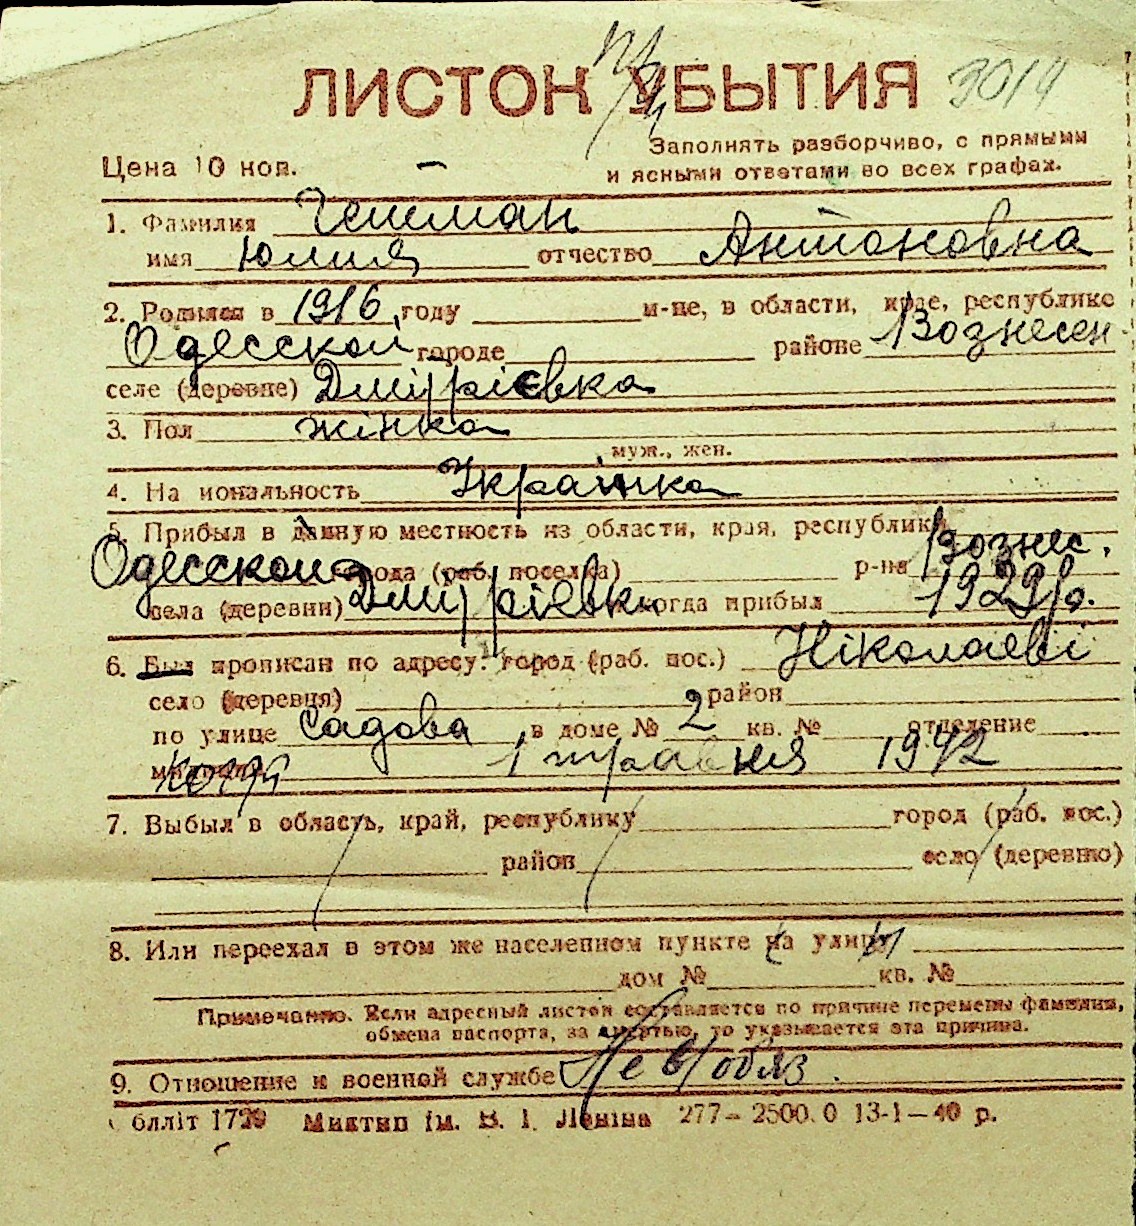 ЛИСТОК УБЫТИЯ 3014
Заполнять разборчиво, с прямыми
Цена 10 коп.
и ясными ответами во всех графах.
1. Фамилия
имя Юлия отчество Антоновна
2. Родился в 1916 году м-це, в области, крае, республике
Одесской городе районе Вознесен
селе (деревне) Дмітрієвка
3. Пол жінка
муж., жен.
4. На иональность Українка
5. Прибыл в данную местность из области, края, республики
Одесской города (раб. поселка) р-на Вознес.
села (деревни) Дмітрієвки когда прибыл 1929 р.
6. Был прописан по адресу: город (раб. пос.) Ніколаєві
село (деревня) район
по улице Садова в доме № 2 кв. № отделение
милиции когда 1 травня 1942
7. Выбыл в область, край, республику город (раб. пос.)
район село (деревню)
8. Или переехал в этом же населенном пункте на улицу
дом № кв. №
Примечание. Если адресный листок составляется по причине перемены фамилии,
обмена паспорта, за смертью, то указывается эта причина.
9. Отношение к военной службе Не в/обяз.
бліліт 1729 Миктип ім. В. І. Леніна 277— 2500.0 13-1—40 р.